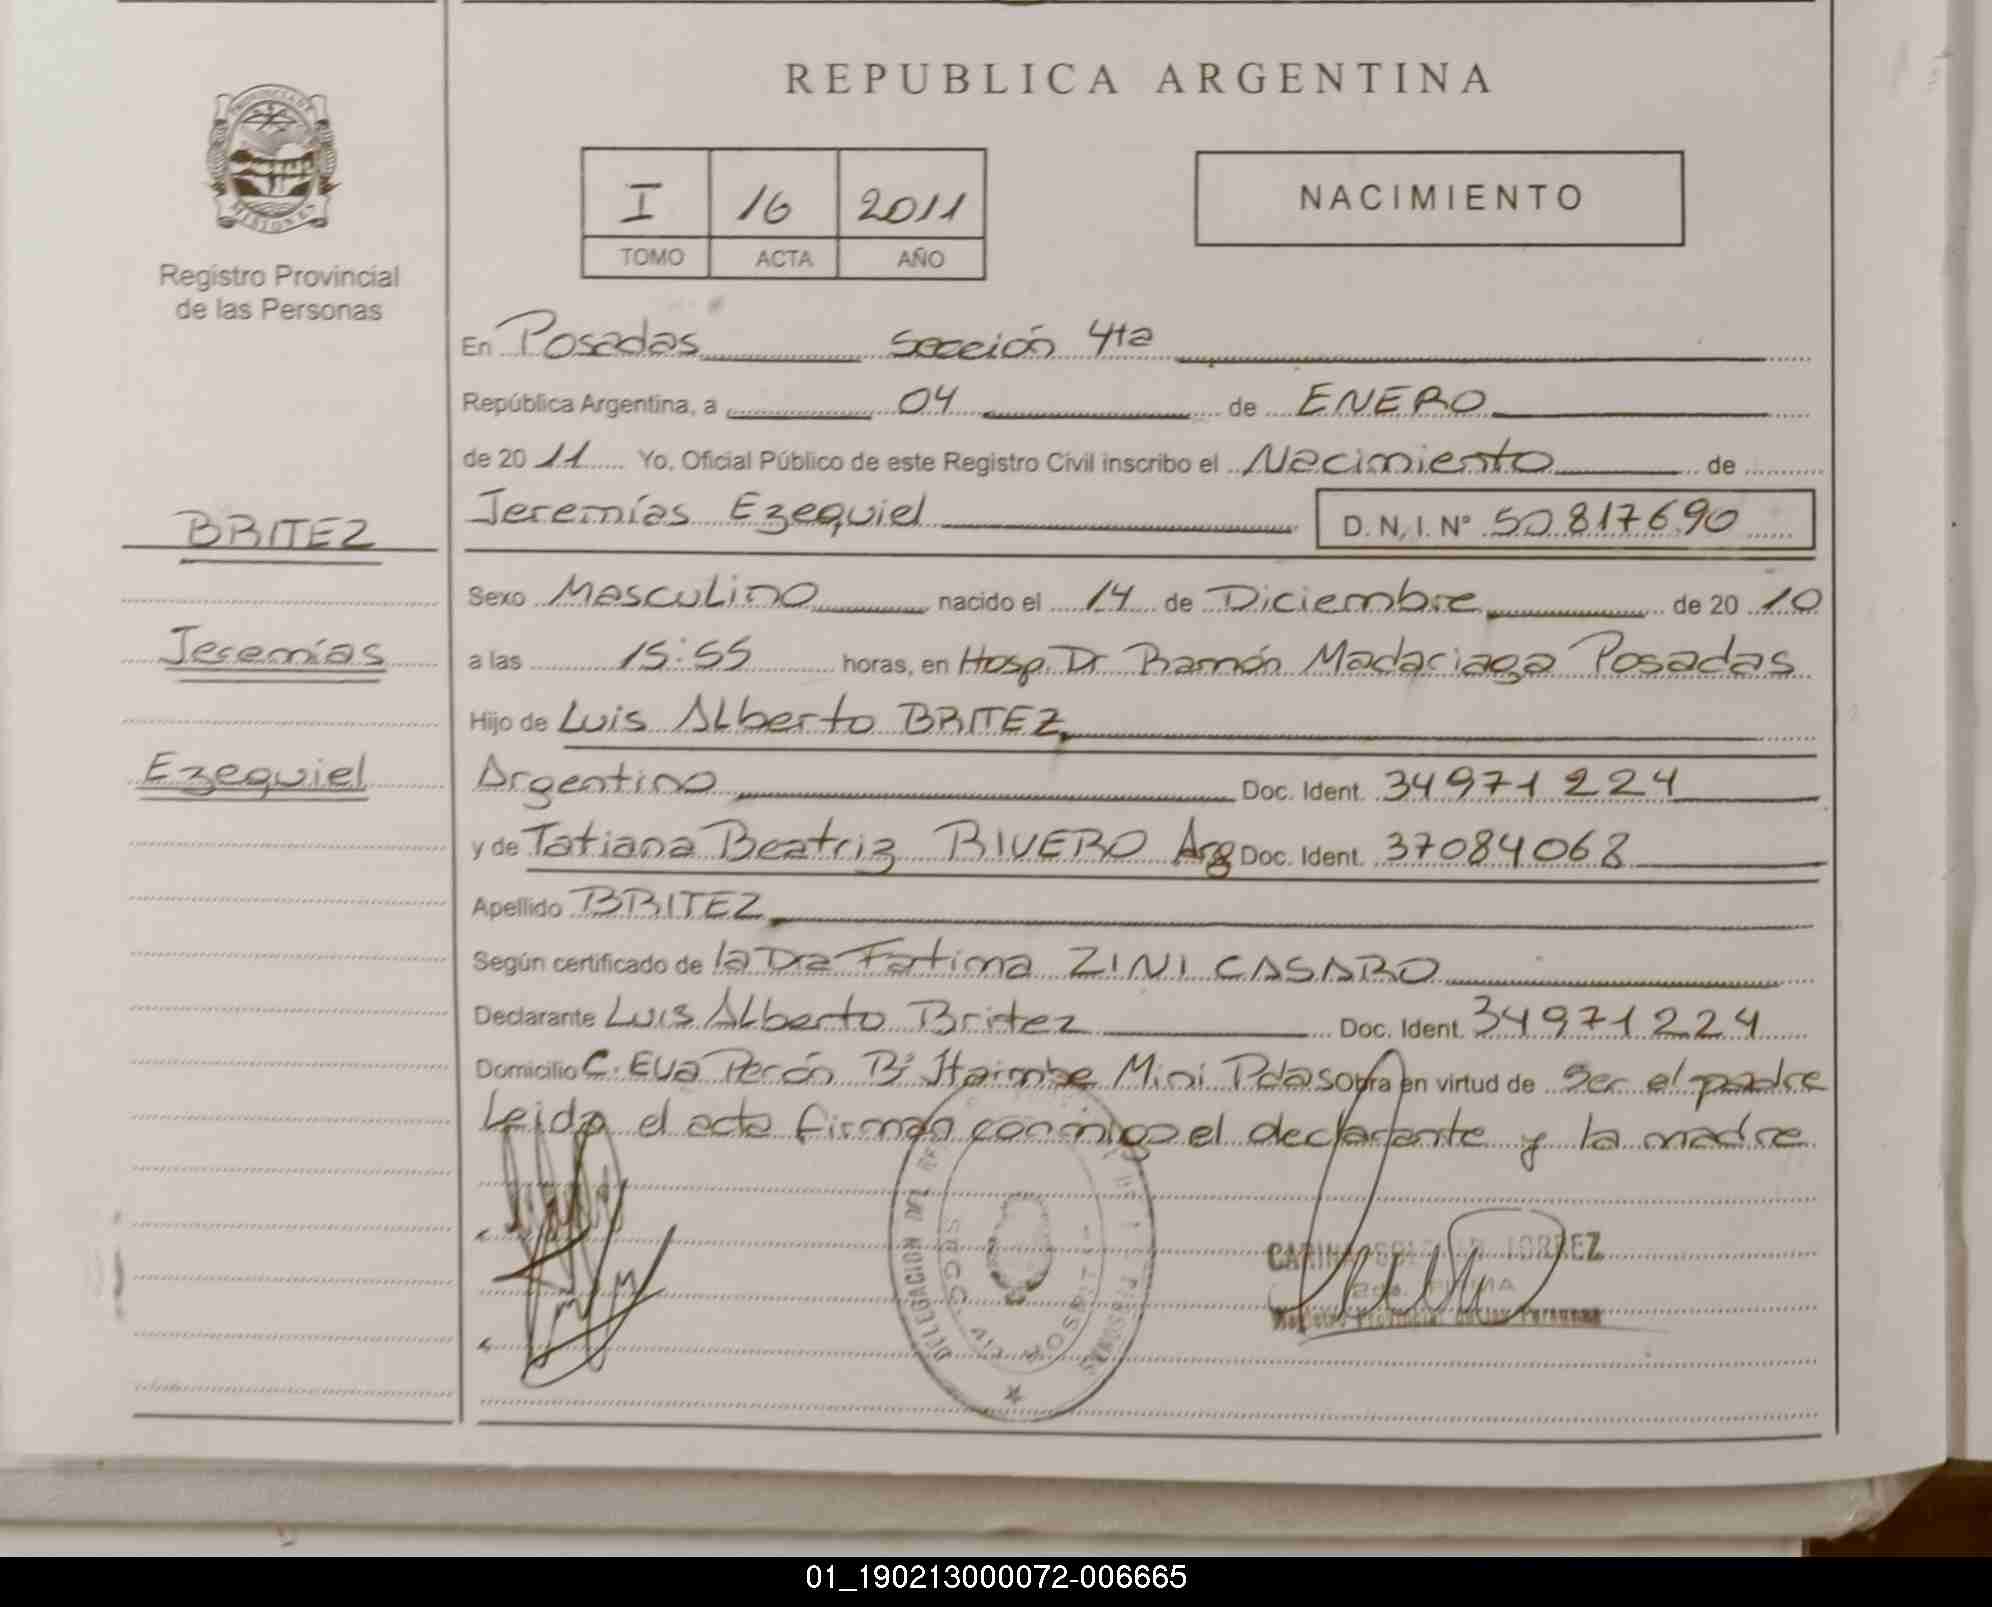 REPUBLICA ARGENTINA
PROVINCIA DE
MISIONES
Registro Provincial
de las Personas
I 16 2011
TOMO ACTA AÑO
NACIMIENTO
En Posadas Sección 4ta
República Argentina, a 04 de ENERO
de 20 11 Yo, Oficial Público de este Registro Civil inscribo el Nacimiento de
BRITEZ
Jeremías
Ezequiel
Jeremías Ezequiel D.N.I. N° 50817690
Sexo Masculino nacido el 14 de Diciembre de 20 10
a las 15:55 horas, en Hosp. Dr Ramón Madariaga Posadas
Hijo de Luis Alberto BRITEZ
Argentino Doc. Ident. 34971224
y de Tatiana Beatriz RIVERO Arg Doc. Ident. 37084068
Apellido BRITEZ
Según certificado de la Dra Fatima ZINI CASARO
Declarante Luis Alberto Britez Doc. Ident. 34971224
Domicilio C. Eva Perón B° Itaimbe Mini Pdas obra en virtud de Ser el padre
Leida el acta firman conmigo el declarante y la madre
DELEGACION DEL
SECC. 4ta POSADAS
CARINA TORREZ
Registro Provincial de las Personas
01_190213000072-006665